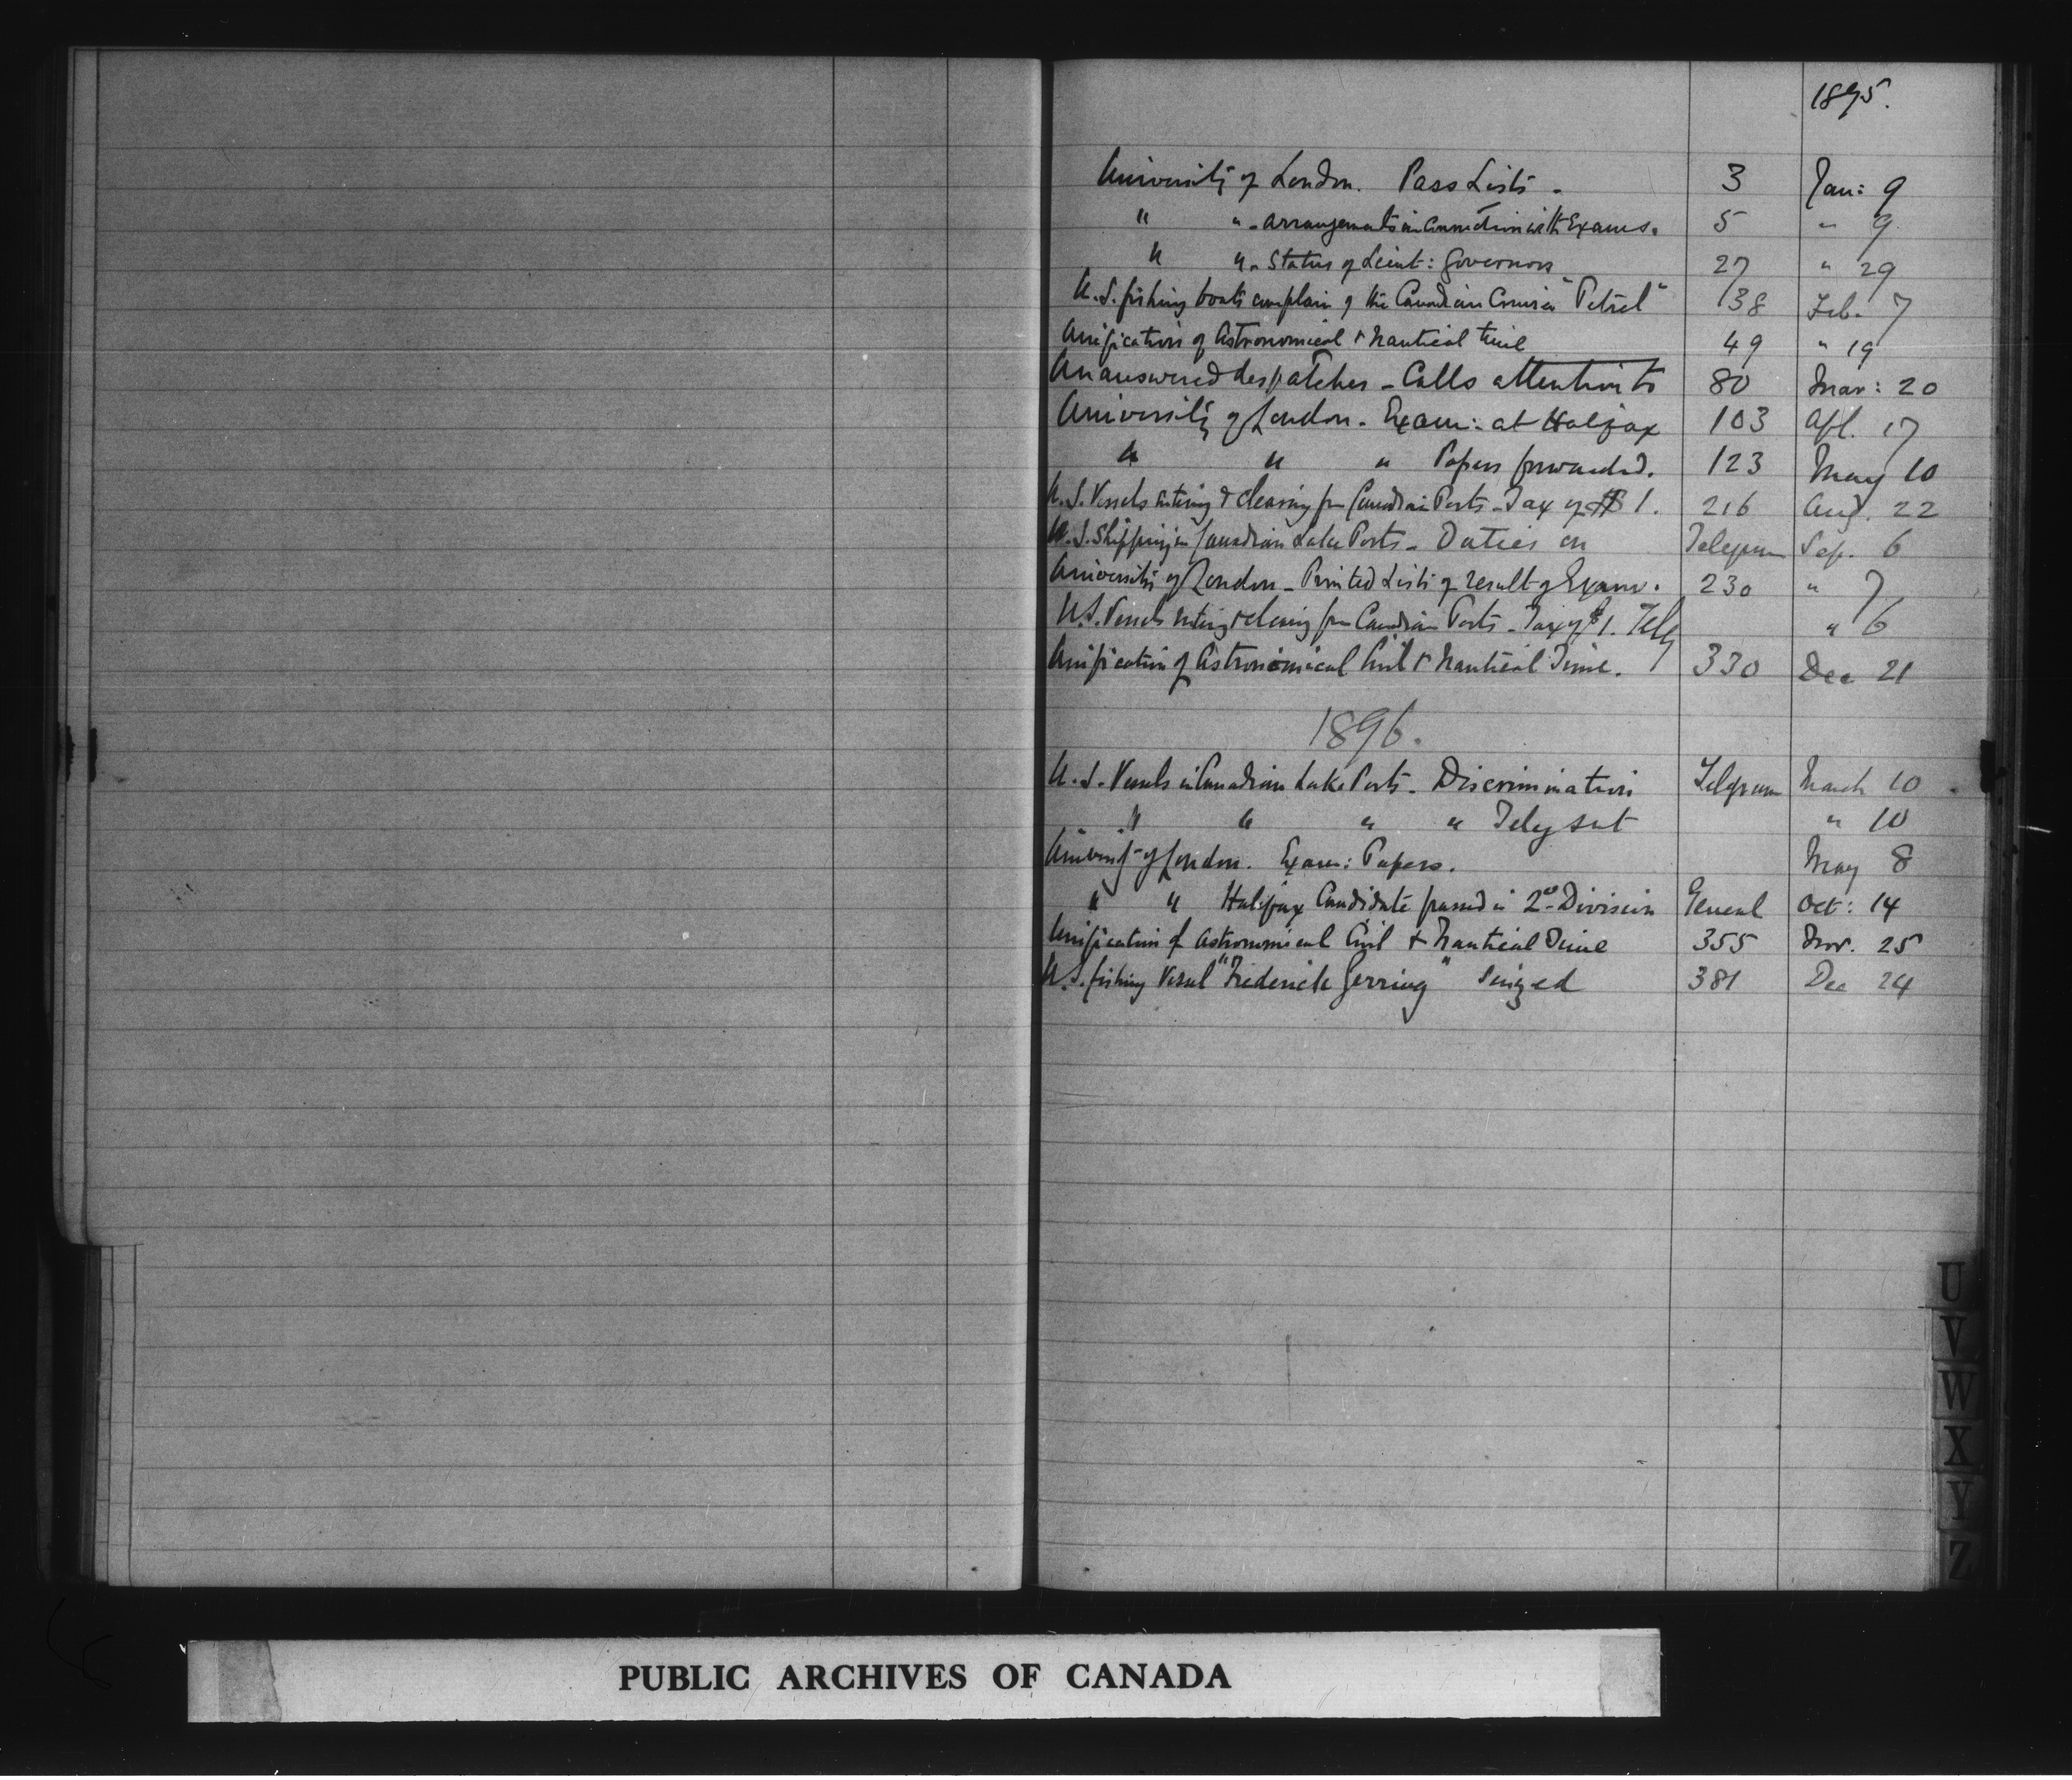 1895.
University of London. Pass Lists - 3 Jan: 9
" " - Arrangements in Connection with Exams. 5 " 9
" " - Status of Lieut: Governors 27 " 29
U.S. fishing boats complain of the Canadian Cruiser "Petrel" 138 Feb. 7
Unification of Astronomical & Nautical time 49 " 19
Unanswered despatches - Calls attention to 80 Mar: 20
University of London. Exam: at Halifax 103 Apl. 17
" " " Papers forwarded. 123 May 10
U.S. Vessels entering & clearing from Canadian Ports - Tax of $1. 216 Aug. 22
U.S. Shipping in Canadian Lake Ports - Duties on Telegram Sep. 6
University of London - Printed Lists of result of Exams. 230 " 7
U.S. Vessels enting & clearing from Canadian Ports - Tax of $1. Teleg " 6
Unification of Astronomical Civil & Nautical Time. 330 Dec 21
1896.
U.S. Vessels in Canadian Lake Ports - Discrimination Telegram March 10
" " " " Teleg sent " 10
Univsity of London. Exam: Papers. May 8
" " Halifax Candidate passed in 2nd Division General Oct: 14
Unification of Astronomical Civil & Nautical Time 355 Nov. 25
U.S. fishing Vessel "Frederick Gerring" Seized 381 Dec 24
U
V
W
X
Y
Z
PUBLIC ARCHIVES OF CANADA